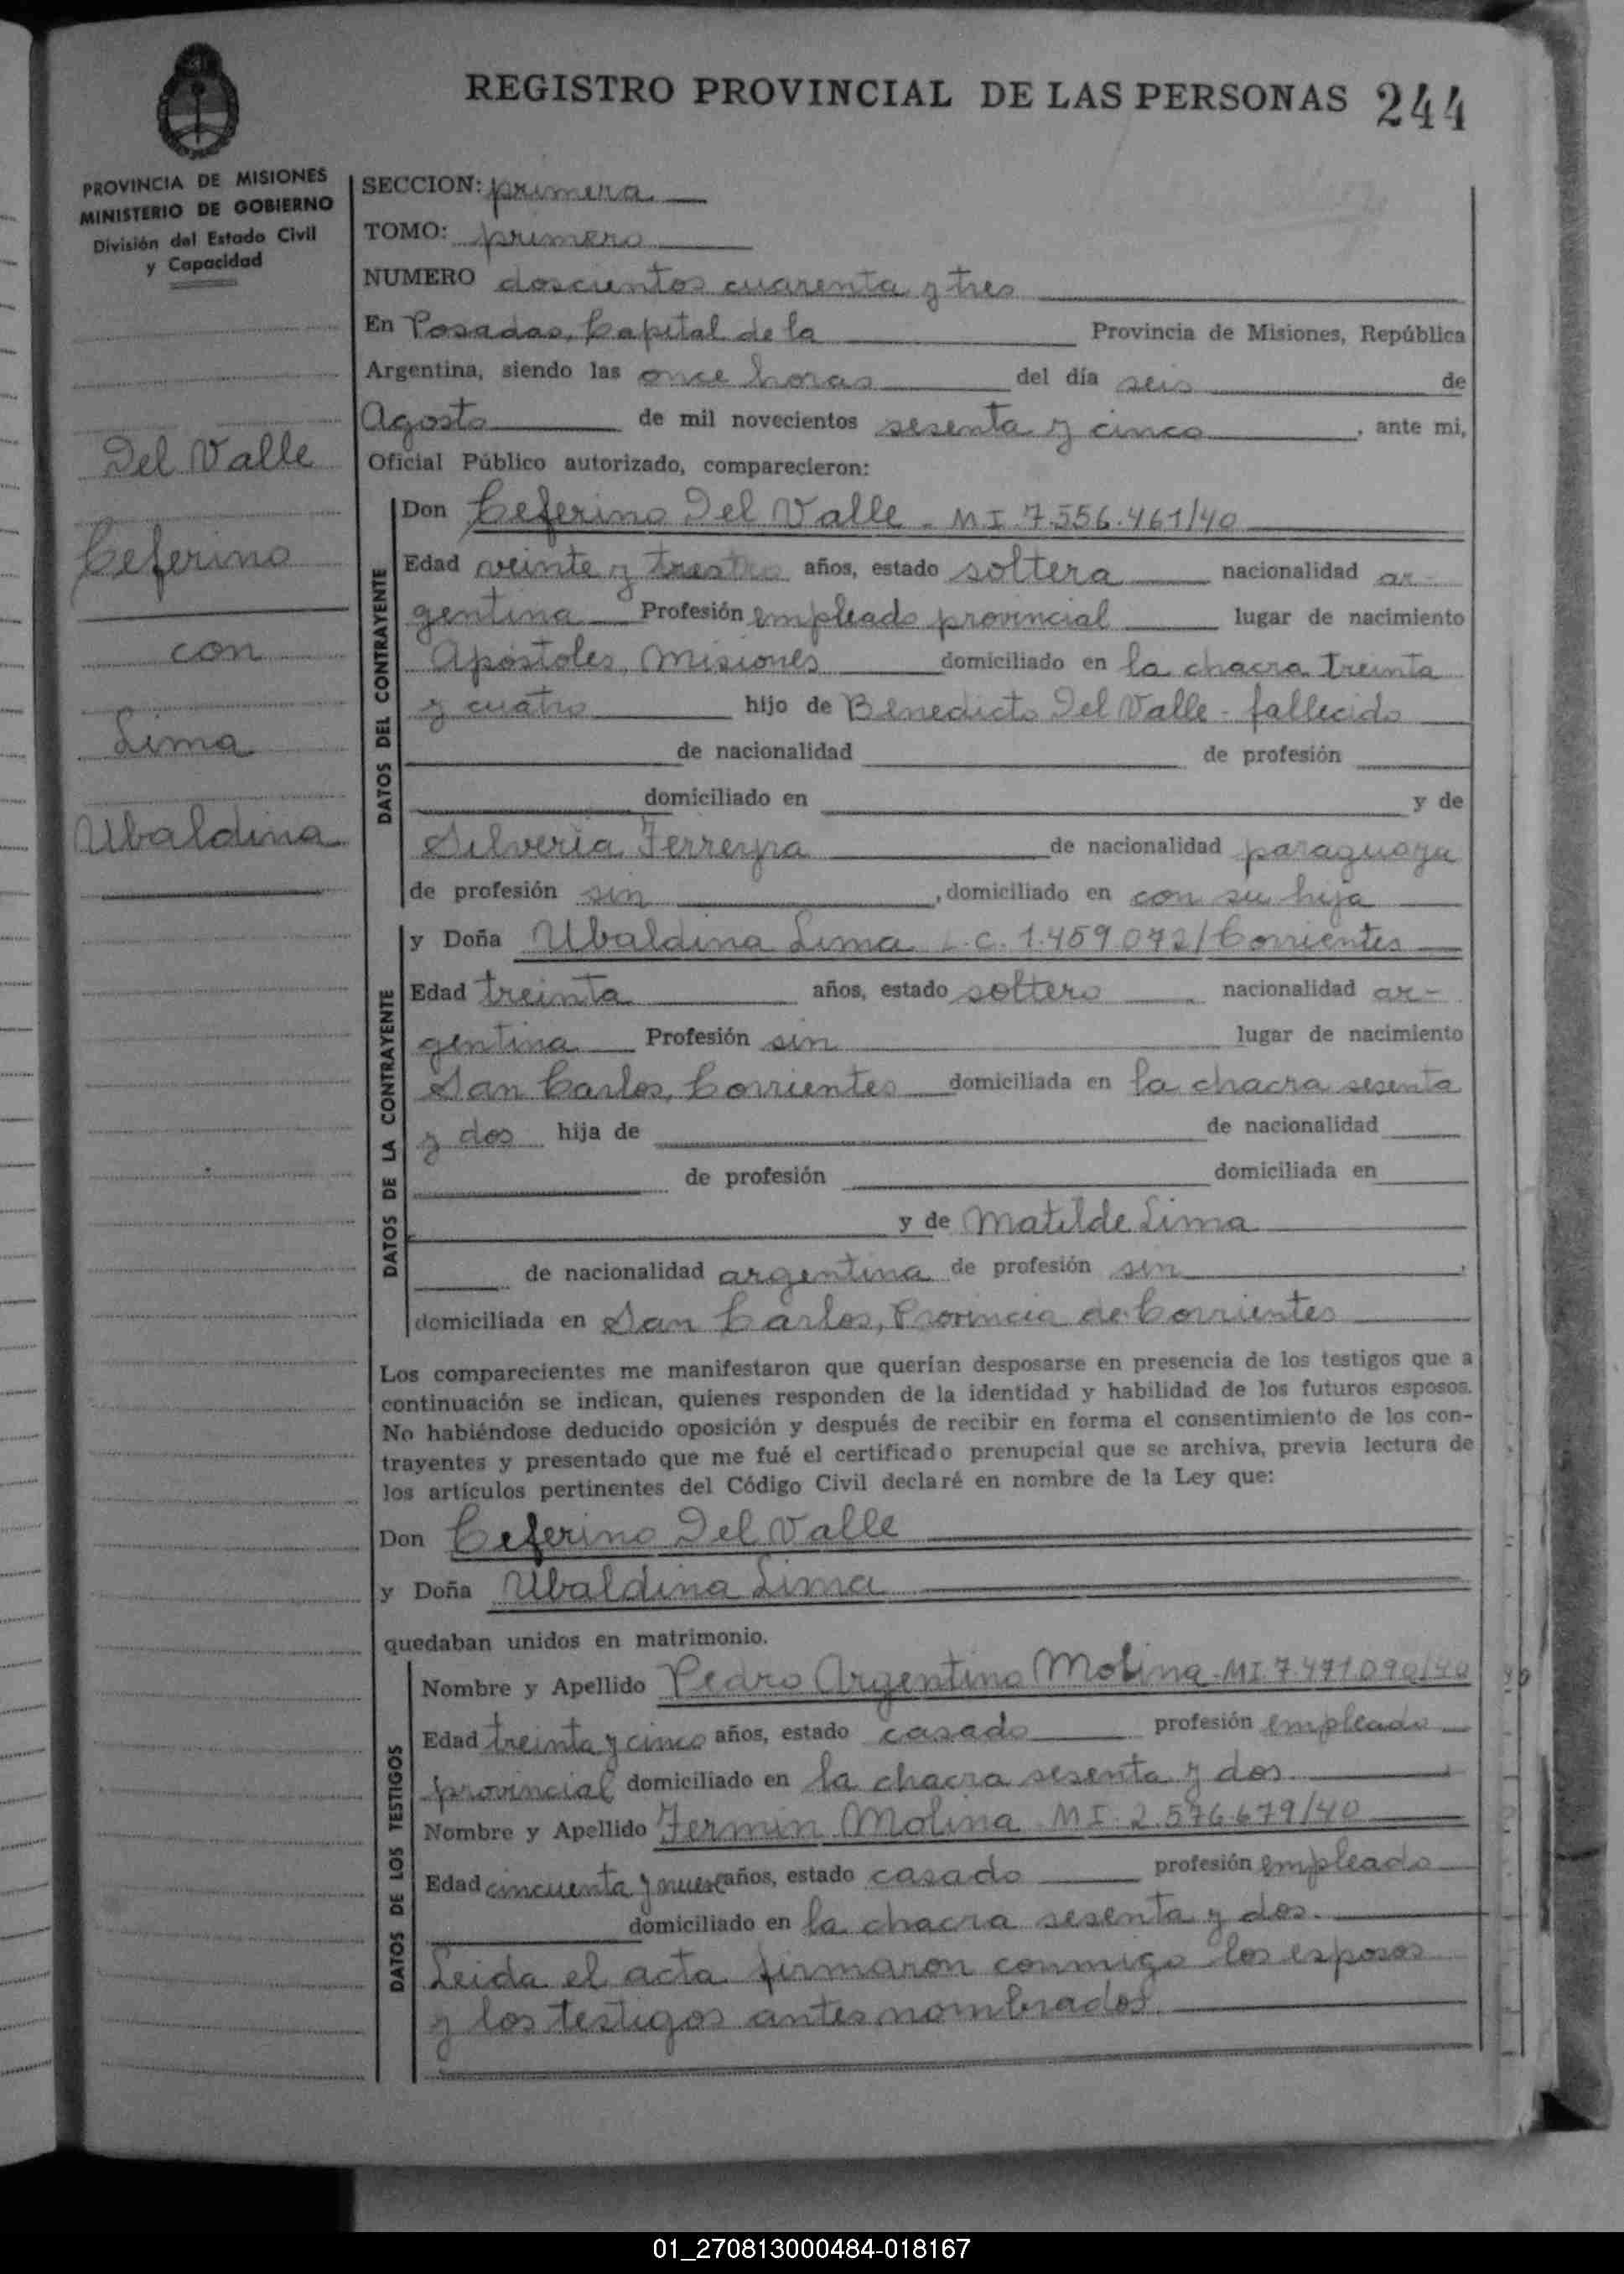 REGISTRO PROVINCIAL DE LAS PERSONAS 244
PROVINCIA DE MISIONES
MINISTERIO DE GOBIERNO
División del Estado Civil
y Capacidad
Del Valle
Ceferino
con
Lima
Ubaldina
SECCION: primera
TOMO: primero
NUMERO doscientos cuarenta y tres
En Posadas, Capital de la Provincia de Misiones, República
Argentina, siendo las once horas del día seis de
Agosto de mil novecientos sesenta y cinco, ante mi,
Oficial Público autorizado, comparecieron:
DATOS DEL CONTRAYENTE
Don Ceferino Del Valle - MI 7.556.461/40
Edad veinte y años, estado soltera nacionalidad ar-
gentina Profesión empleado provincial lugar de nacimiento
Apóstoles, Misiones domiciliado en la chacra treinta
y cuatro hijo de Benedicto Del Valle - fallecido
de nacionalidad de profesión
domiciliado en y de
Silveria Ferreyra de nacionalidad paraguaya
de profesión sin, domiciliado en con su hija
DATOS DE LA CONTRAYENTE
y Doña Ubaldina Lima L.C. 1.459.072/Corrientes
Edad treinta años, estado soltero nacionalidad ar-
gentina Profesión sin lugar de nacimiento
San Carlos, Corrientes domiciliada en la chacra sesenta
y dos hija de de nacionalidad
de profesión domiciliada en
y de Matilde Lima
de nacionalidad argentina de profesión sin,
domiciliada en San Carlos, Provincia de Corrientes
Los comparecientes me manifestaron que querían desposarse en presencia de los testigos que a
continuación se indican, quienes responden de la identidad y habilidad de los futuros esposos.
No habiéndose deducido oposición y después de recibir en forma el consentimiento de los con-
trayentes y presentado que me fué el certificado prenupcial que se archiva, previa lectura de
los artículos pertinentes del Código Civil declaré en nombre de la Ley que:
Don Ceferino Del Valle
y Doña Ubaldina Lima
quedaban unidos en matrimonio.
DATOS DE LOS TESTIGOS
Nombre y Apellido Pedro Argentino Molina - MI. 7.471.090/40
Edad treinta y cinco años, estado casado profesión empleado
provincial domiciliado en la chacra sesenta y dos
Nombre y Apellido Fermin Molina MI. 2.576.679/40
Edad cincuenta y nueve años, estado casado profesión empleado
domiciliado en la chacra sesenta y dos.
Leida el acta firmaron conmigo los esposos
y los testigos antes nombrados.
01_270813000484-018167